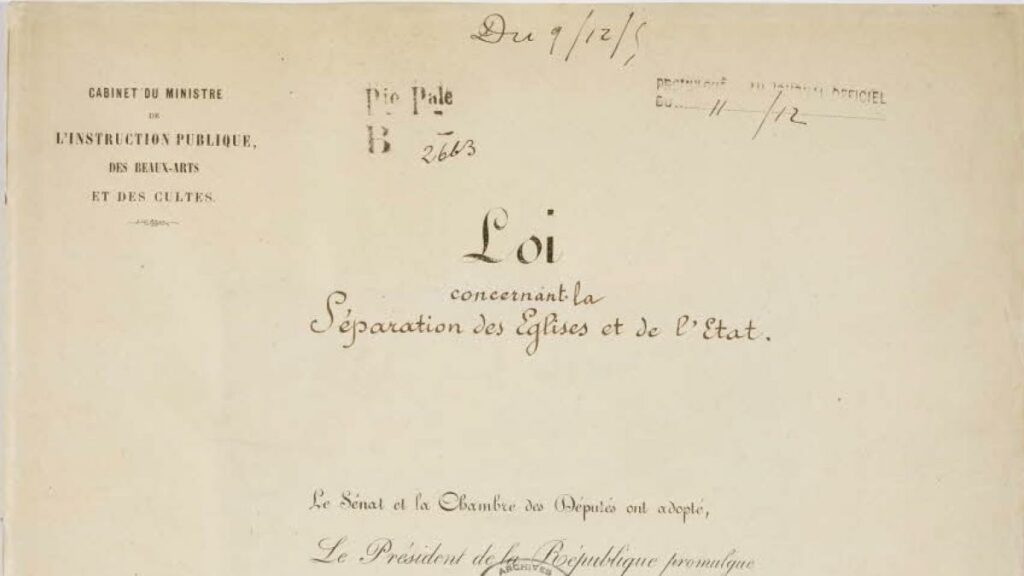 Du 9/12/5
CABINET DU MINISTRE
DE
L'INSTRUCTION PUBLIQUE,
DES BEAUX-ARTS
ET DES CULTES.
Pie Pale
B 2663
PROMULGUÉ AU JOURNAL OFFICIEL
DU 11/12
Loi
concernant la
Séparation des Eglises et de l'Etat.
Le Sénat et la Chambre des Députés ont adopté,
Le Président de la République promulgue
ARCHIVES